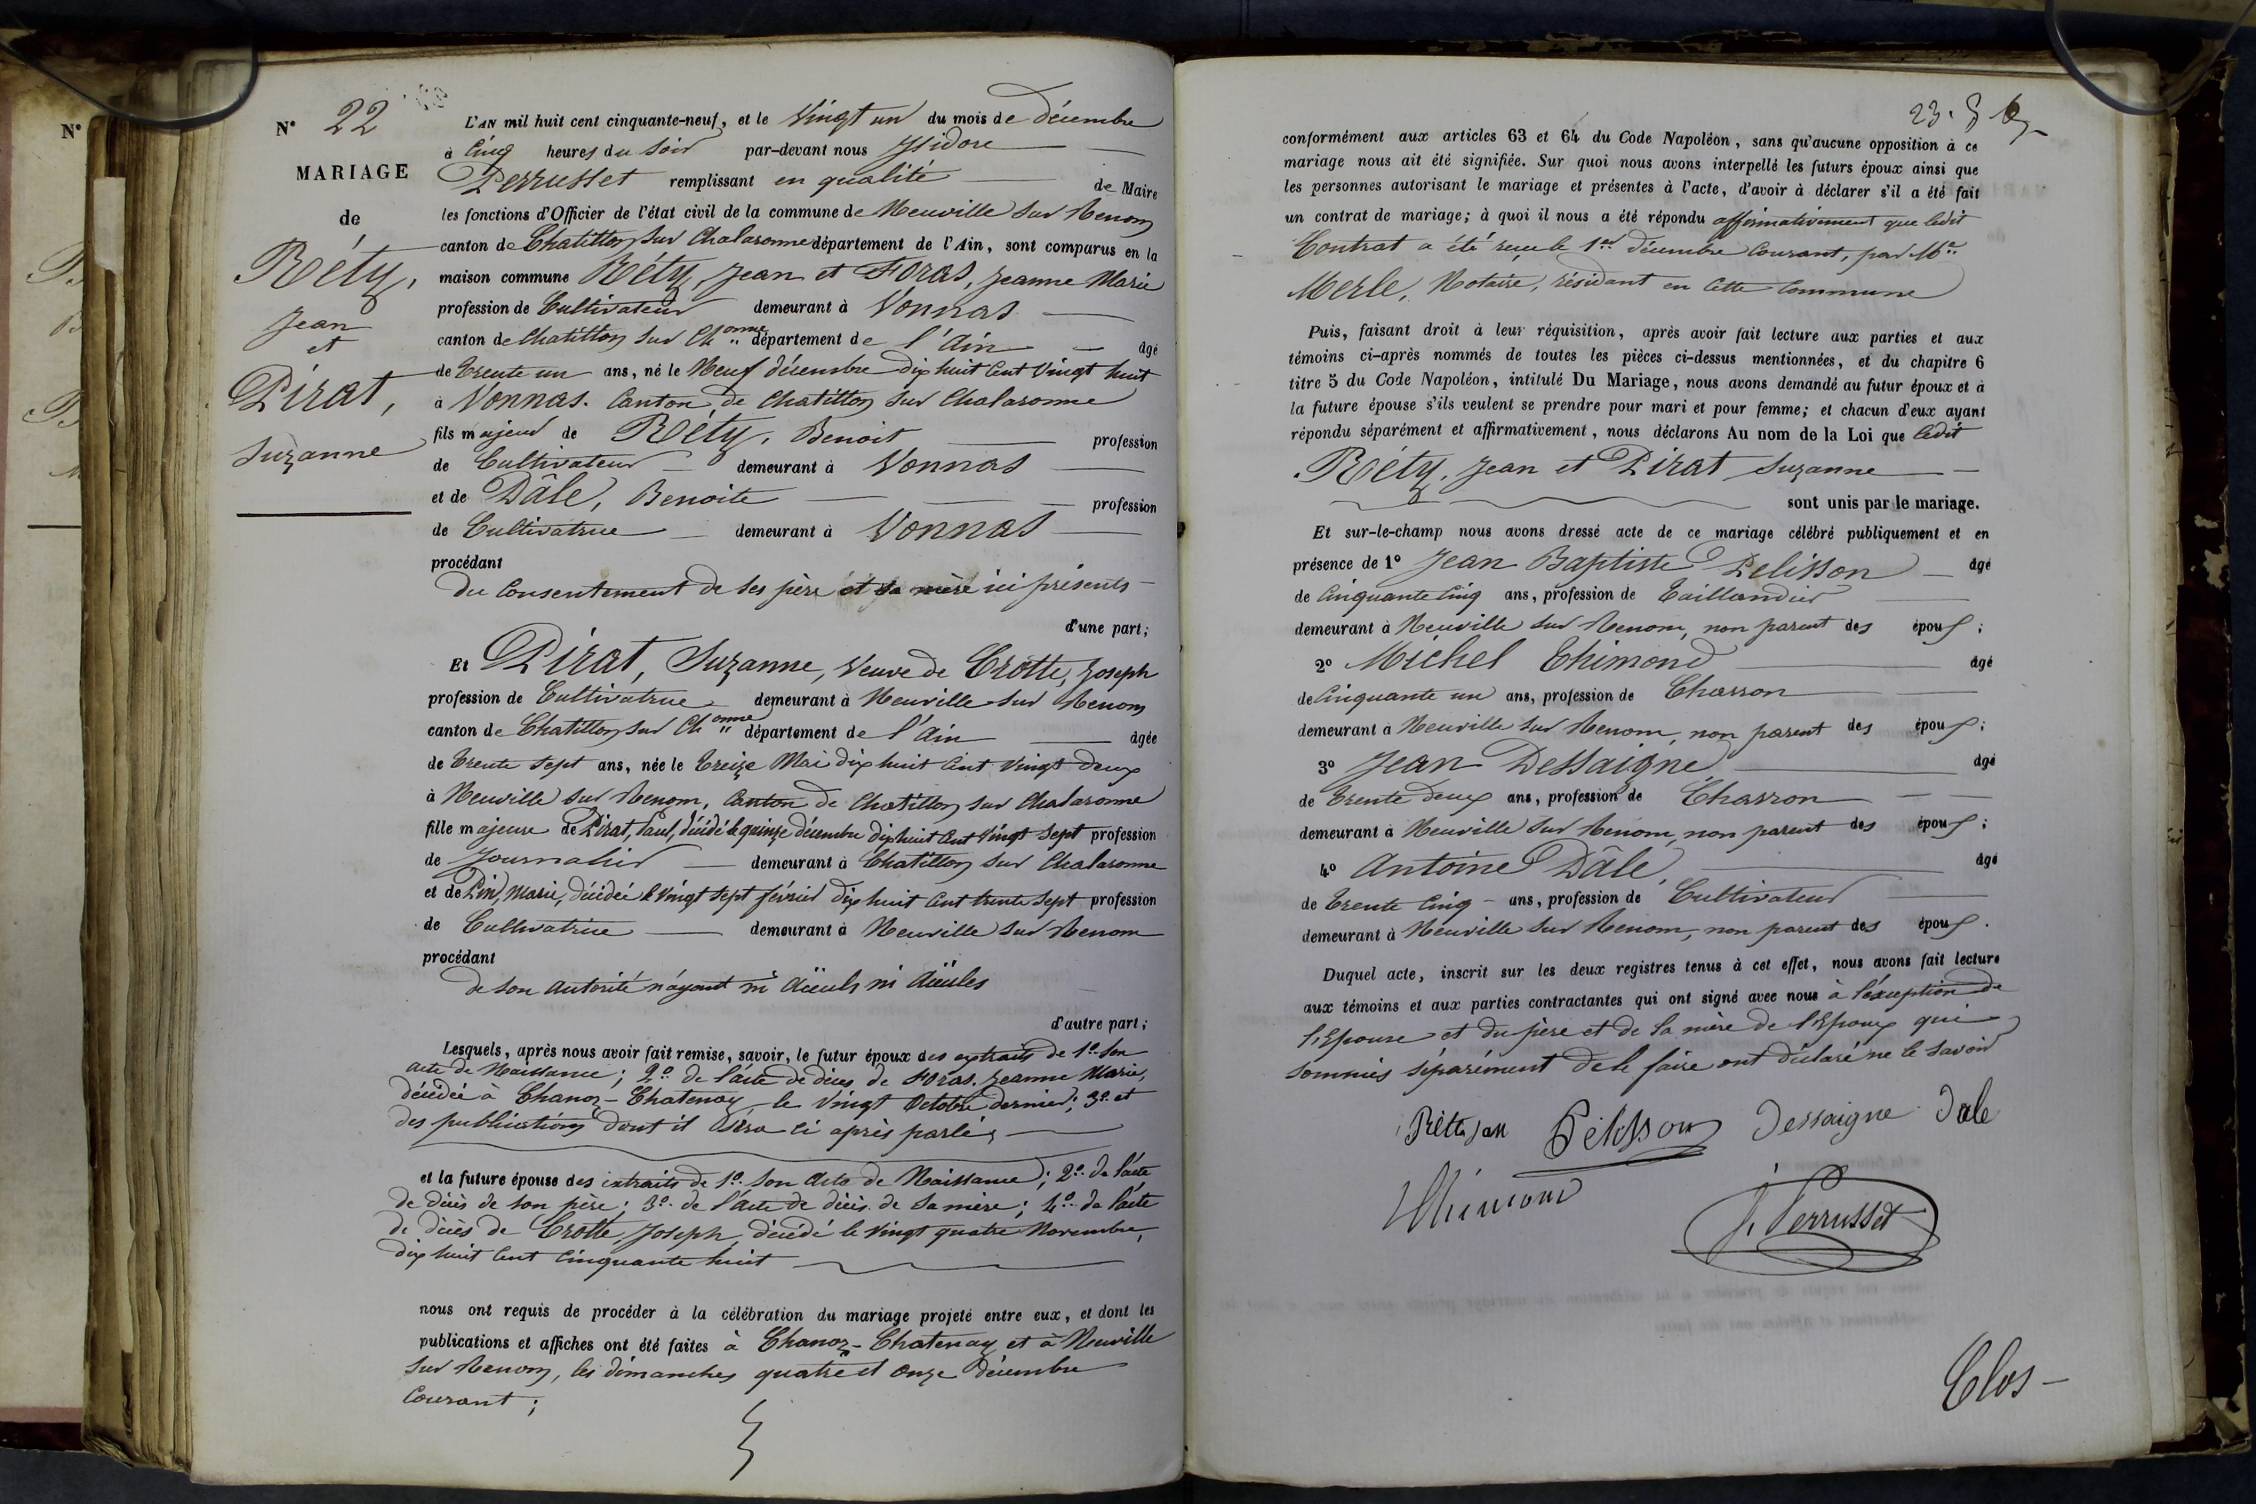 N° 22
MARIAGE
de
Réty,
Jean
et
Pirat,
Suzanne
L'AN mil huit cent cinquante-neuf, et le Vingt un du mois de décembre
à Cinq heures du Soir par-devant nous Isidore
Perrusset remplissant en qualité de Maire
les fonctions d'Officier de l'état civil de la commune de Neuville sur Renom
canton de Chatillon sur Chalaronne département de l'Ain, sont comparus en la
maison commune Réty, Jean et Foras, Jeanne Marie
profession de Cultivateur demeurant à Vonnas
canton de Chatillon sur Ch onne département de l'Ain âgé
de Trente un ans, né le Neuf décembre dix huit Cent Vingt huit
à Vonnas. Canton de Chatillon sur Chalaronne
fils majeur de Réty, Benoit profession
de Cultivateur demeurant à Vonnas
et de Dâle, Benoite profession
de Cultivatrice demeurant à Vonnas
procédant
du Consentement de ses père et sa mère ici présents
d'une part;
Et Pirat, Suzanne, Veuve de Crotte, Joseph
profession de Cultivatrice demeurant à Neuville sur Renom
canton de Chatillon sur Ch onne département de l'Ain âgée
de Trente sept ans, née le Treize Mai dix huit Cent Vingt deux
à Neuville sur Renom, Canton de Chatillon sur Chalaronne
fille majeure de Pirat, Paul, décédé le quinze décembre dix huit Cent Vingt sept profession
de Journalier demeurant à Chatillon sur Chalaronne
et de Pin, Marie, décédée le Vingt sept février dix huit Cent trente sept profession
de Cultivatrice demeurant à Neuville sur Renom
procédant
de son Autorité n'ayant ni Aïeuls ni Aïeules
d'autre part;
Lesquels, après nous avoir fait remise, savoir, le futur époux des extraits de 1° son
acte de Naissance; 2° de l'acte de décès de Foras, Jeanne Marie,
décédée à Chanoz-Châtenay le Vingt Octobre dernier; 3° et
des publications dont il sera ci après parlé,
et la future épouse des extraits de 1° son Acte de Naissance; 2° de l'acte
de décès de son père; 3° de l'acte de décès de sa mère; 4° de l'acte
de décès de Crotte, Joseph, décédé le Vingt quatre Novembre,
dix huit Cent Cinquante huit
nous ont requis de procéder à la célébration du mariage projeté entre eux, et dont les
publications et affiches ont été faites à Chanoz-Chatenay et à Neuville
sur Renom, les dimanches quatre et onze décembre
Courant;
23.
conformément aux articles 63 et 64 du Code Napoléon, sans qu'aucune opposition à ce
mariage nous ait été signifiée. Sur quoi nous avons interpellé les futurs époux ainsi que
les personnes autorisant le mariage et présentes à l'acte, d'avoir à déclarer s'il a été fait
un contrat de mariage; à quoi il nous a été répondu affirmativement que ledit
Contrat a été reçu le 1er décembre Courant, par Me
Merle, Notaire, résidant en cette Commune
Puis, faisant droit à leur réquisition, après avoir fait lecture aux parties et aux
témoins ci-après nommés de toutes les pièces ci-dessus mentionnées, et du chapitre 6
titre 5 du Code Napoléon, intitulé Du Mariage, nous avons demandé au futur époux et à
la future épouse s'ils veulent se prendre pour mari et pour femme; et chacun d'eux ayant
répondu séparément et affirmativement, nous déclarons Au nom de la Loi que ledit
Réty, Jean et Pirat Suzanne
sont unis par le mariage.
Et sur-le-champ nous avons dressé acte de ce mariage célébré publiquement et en
présence de 1° Jean Baptiste Pelisson âgé
de Cinquante Cinq ans, profession de Taillandier
demeurant à Neuville sur Renom, non parent des époux;
2° Michel Thimond âgé
de Cinquante un ans, profession de Charron
demeurant à Neuville sur Renom, non parent des époux;
3° Jean Dessaigne âgé
de Trente deux ans, profession de Charron
demeurant à Neuville sur Renom, non parent des époux;
4° Antoine Dâle, âgé
de Trente Cinq ans, profession de Cultivateur
demeurant à Neuville sur Renom, non parent des époux.
Duquel acte, inscrit sur les deux registres tenus à cet effet, nous avons fait lecture
aux témoins et aux parties contractantes qui ont signé avec nous à l'exception de
l'Epouse et du père et de la mère de l'Epoux qui
sommés séparément de le faire ont déclaré ne le savoir
Rétty Jan Pelisson Dessaigne Dale
Thimond
J. Perrusset
Clos